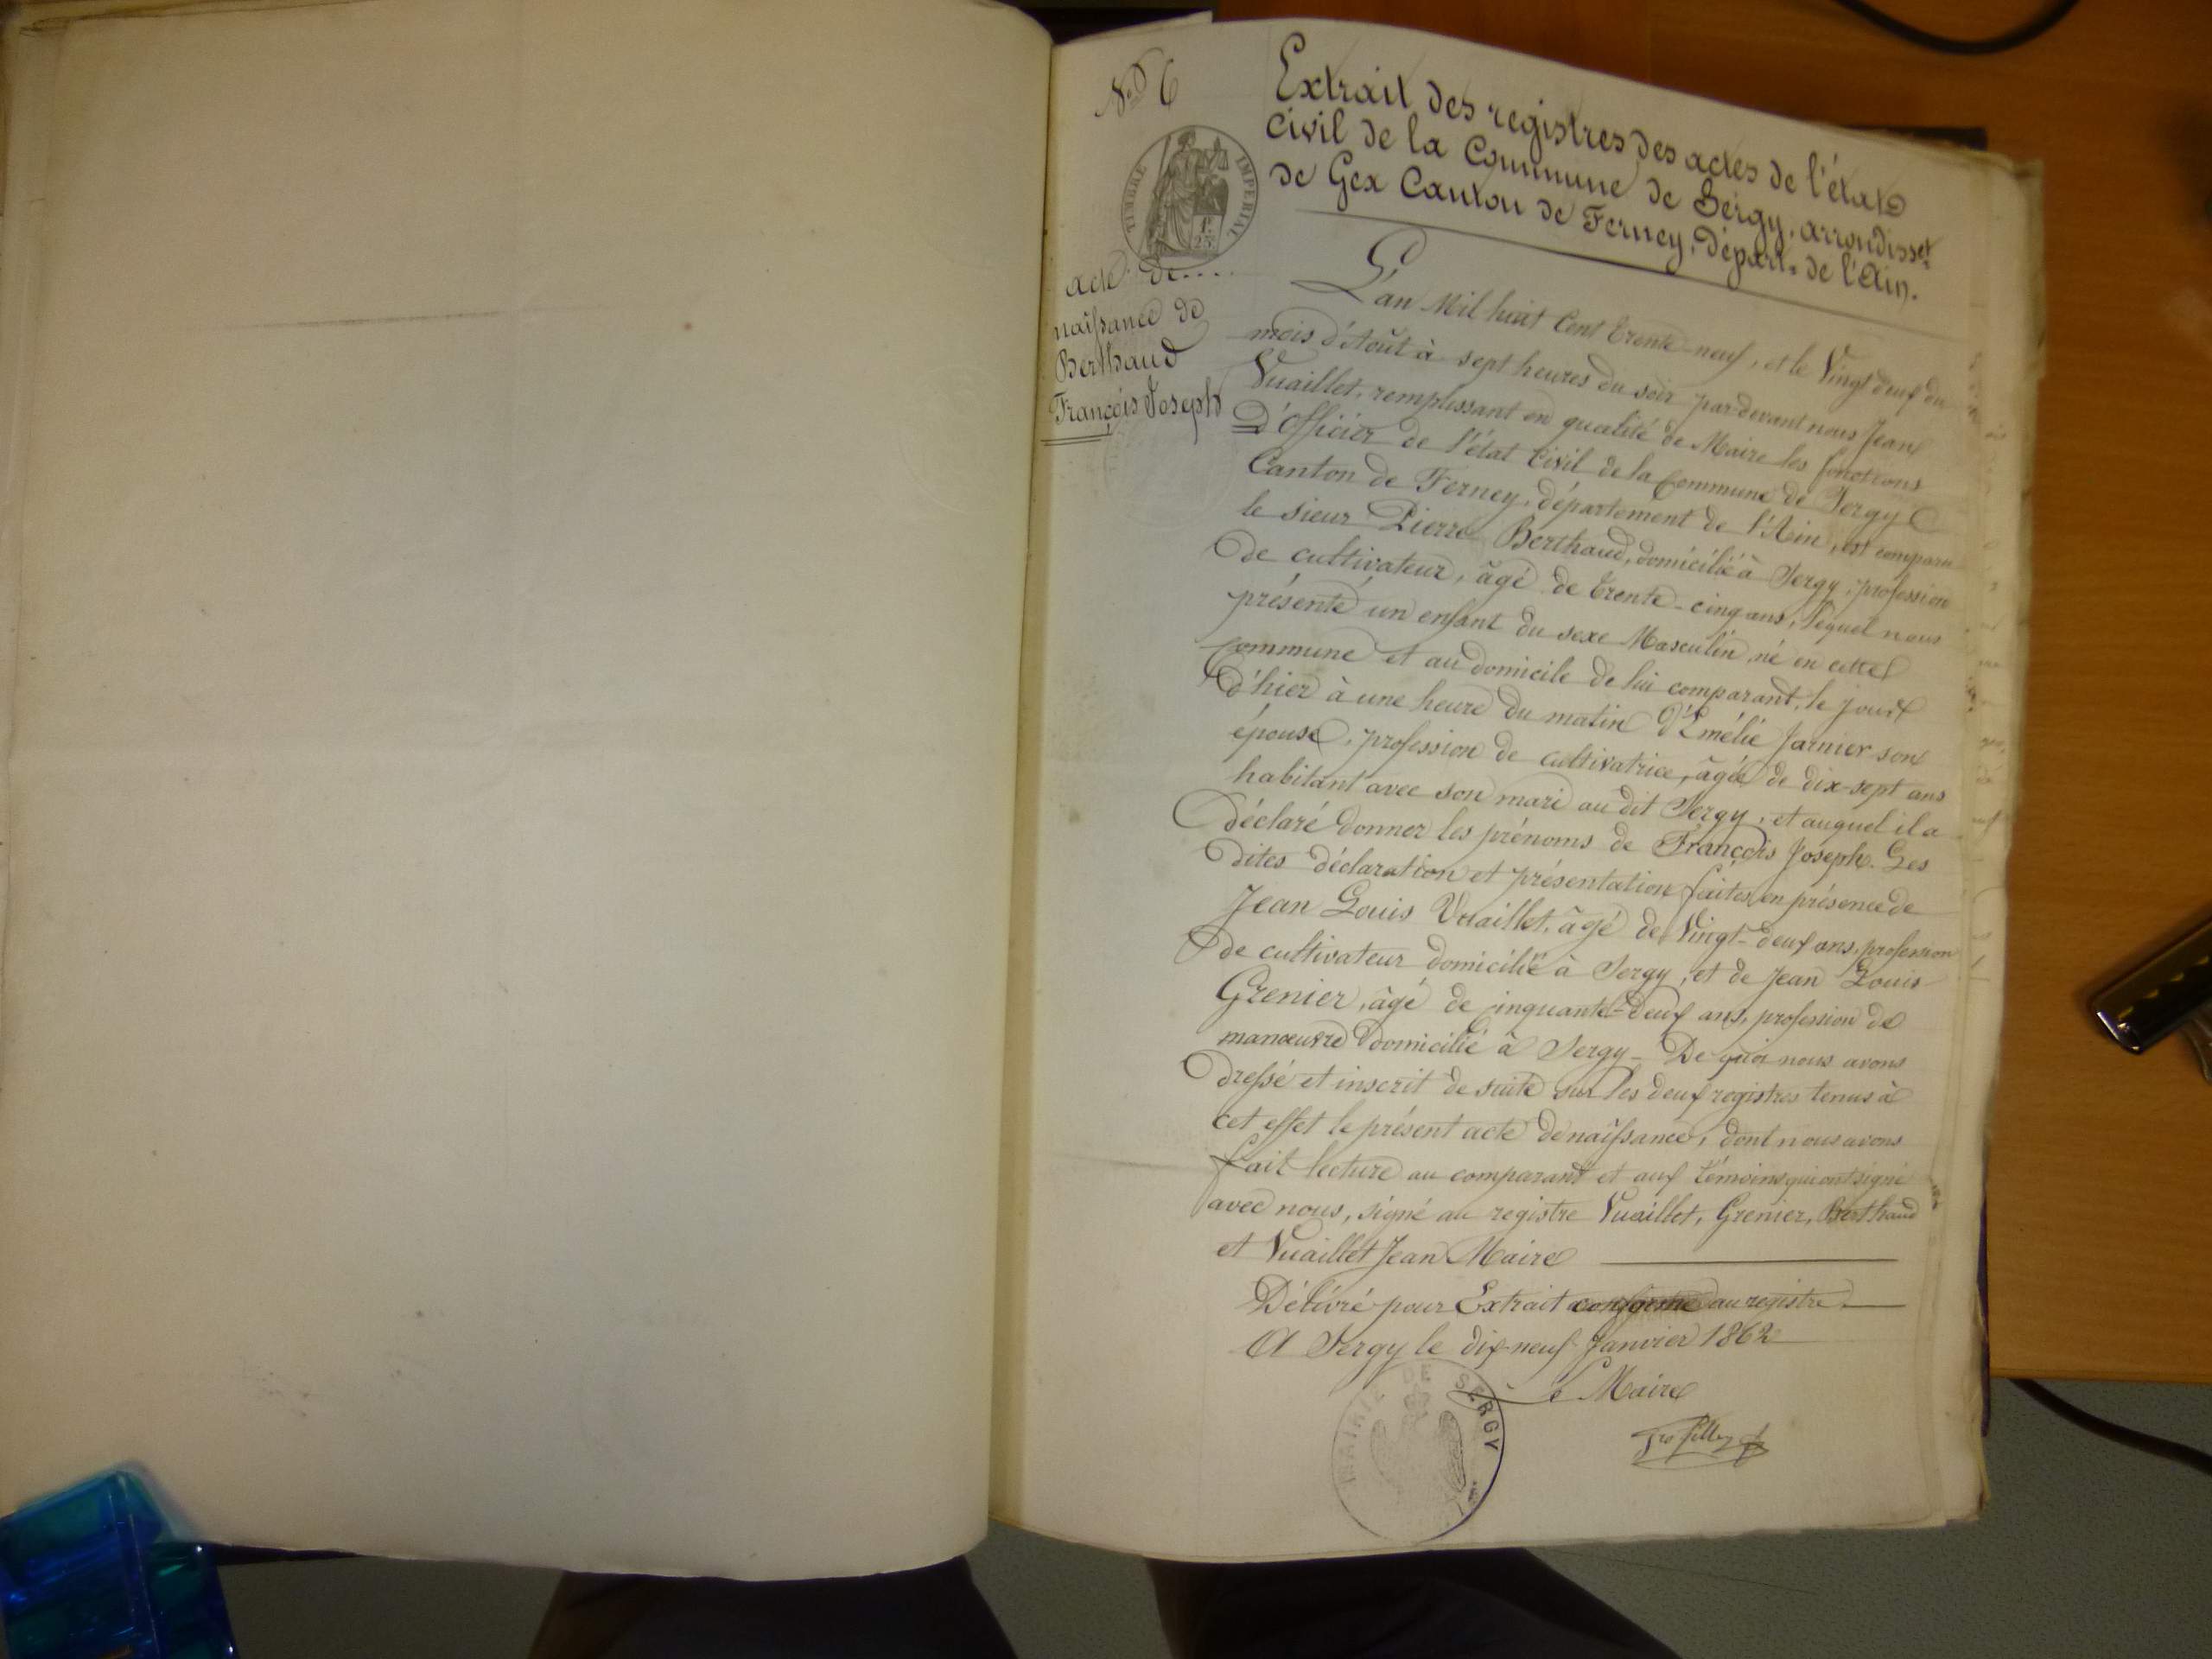 N.º 6
Extrait des registres des actes de l'état
civil de la Commune de Sergy, arrondisset
de Gex Canton de Ferney, départ. de l'Ain.
TIMBRE IMPERIAL
1F 25
acte de....
naissance de
Berthaud
François Joseph
L'an Mil huit Cent trente-neuf, et le Vingt deux du
mois d'Août à sept heures du soir par-devant nous Jean
Vuaillet, remplissant en qualité de Maire les fonctions
d'Officier de l'état Civil de la Commune de Sergy
Canton de Ferney, département de l'Ain, est comparu
le sieur Pierre Berthaud, domicilié à Sergy, profession
de cultivateur, âgé de trente-cinq ans, lequel nous
présenté un enfant du sexe Masculin, né en cette
Commune et au domicile de lui comparant, le jour
d'hier à une heure du matin d'Emélie Jarnier son
épouse, profession de cultivatrice, âgée de dix-sept ans
habitant avec son mari au dit Sergy, et auquel il a
déclaré donner les prénoms de François Joseph. Les
dites déclaration et présentation faites en présence de
Jean Louis Vuaillet, âgé de Vingt-deux ans, profession
de cultivateur domicilié à Sergy, et de Jean Louis
Grenier, âgé de cinquante-deux ans, profession de
manœuvre domicilié à Sergy - De quoi nous avons
dressé et inscrit de suite sur les deux registres tenus à
cet effet le présent acte de naissance, dont nous avons
fait lecture au comparant et aux témoins qui ont signé
avec nous, signé au registre Vuaillet, Grenier, Berthaud
et Vuaillet Jean Maire
Délivré pour Extrait conforme au registre.
A Sergy le dix-neuf Janvier 1862
le Maire
MAIRIE DE SERGY